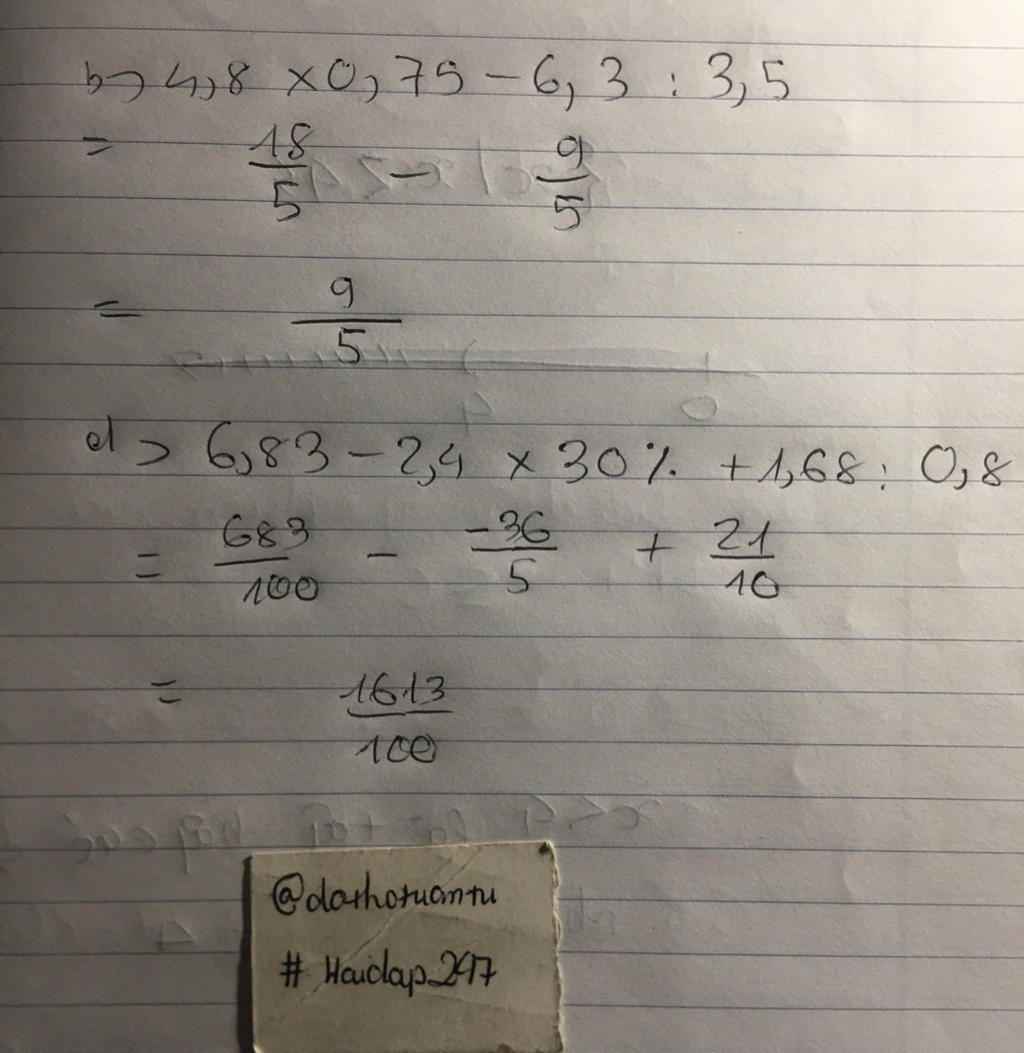 b> 4,8 × 0,75 - 6,3 : 3,5
= 18/5 - 9/5
= 9/5
d> 6,83 - 2,4 × 30% + 1,68 : 0,8
= 683/100 - -36/5 + 21/10
= 1613/100
@darhotuantu
# Haidap_247